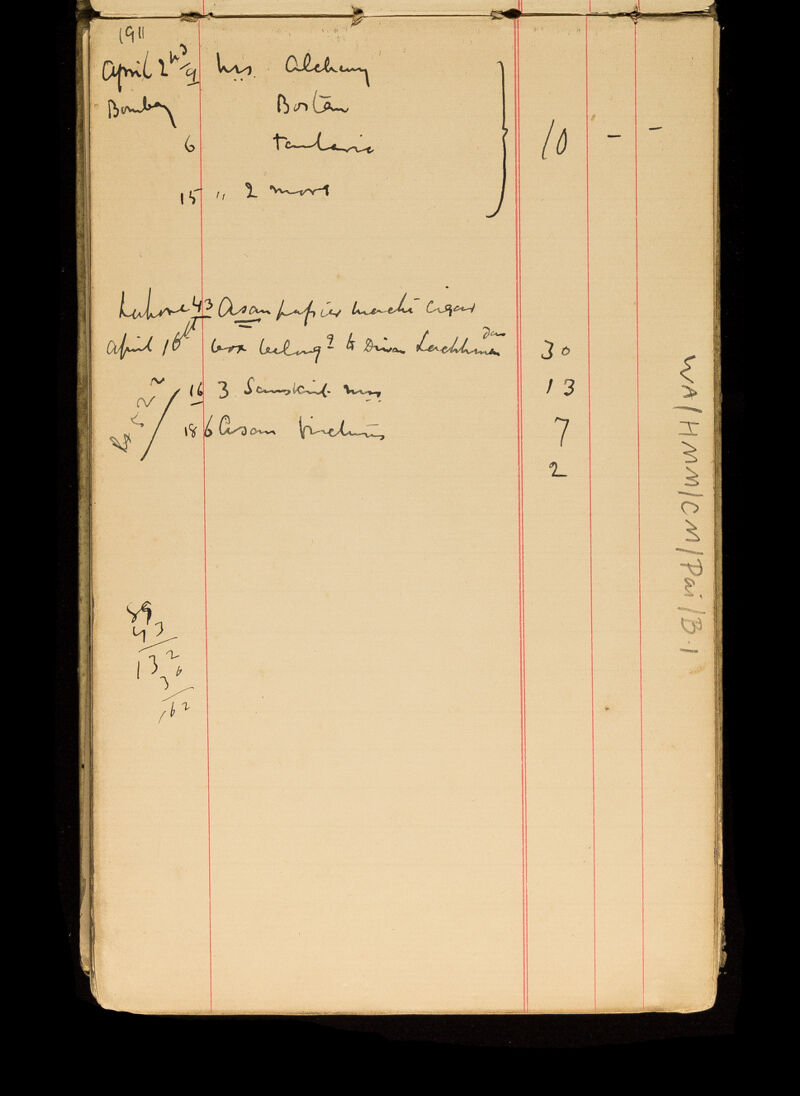 1911
April 2nd 9 mss. Alchemy
Bombay Bostan
6 10 - -
15 " 2 more
Lahore 43 Asan papier maché cigar
April 16th box belong? to Diwan Lachhman Das 30
16 3 Sanskrit mss 13
Rs 52
18 6 Asan 7
2
89
43
132
30
162
WA/HMM/CM/Pai/B.1